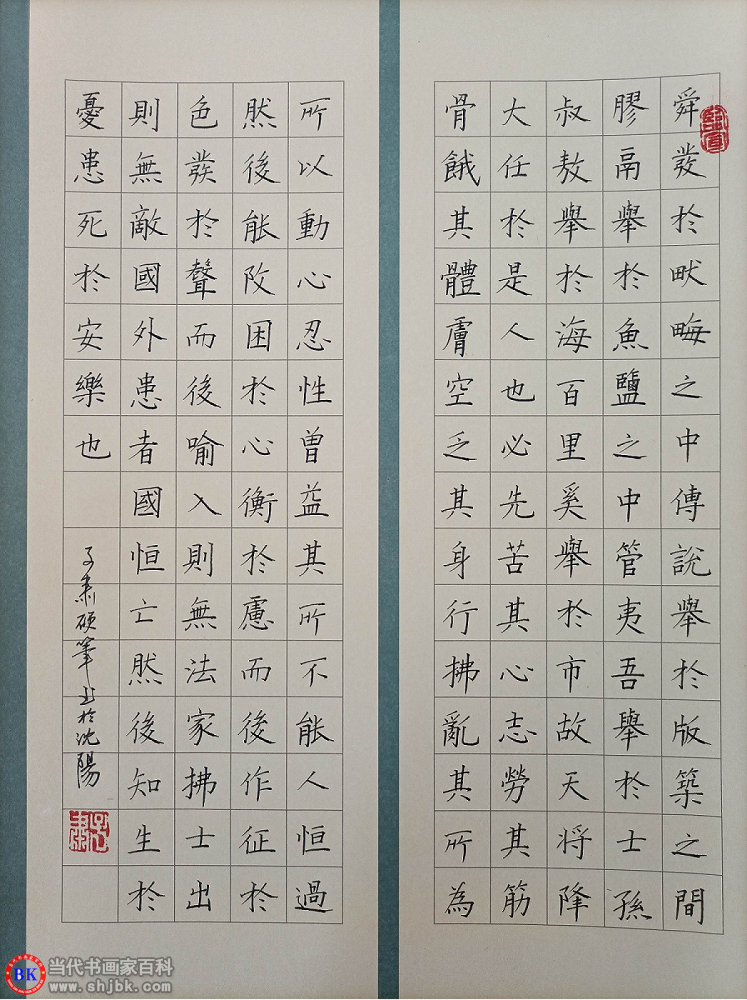 舜發於畎畮之中傳說舉於版築之間
膠鬲舉於魚鹽之中管夷吾舉於士孫
叔敖舉於海百里奚舉於市故天將降
大任於是人也必先苦其心志勞其筋
骨餓其體膚空乏其身行拂亂其所為
所以動心忍性曾益其所不能人恒過
然後能改困於心衡於慮而後作征於
色發於聲而後喻入則無法家拂士出
則無敵國外患者國恒亡然後知生於
憂患死於安樂也
子肃硬筆书於沈陽
BK 当代书画家百科
www.shjbk.com